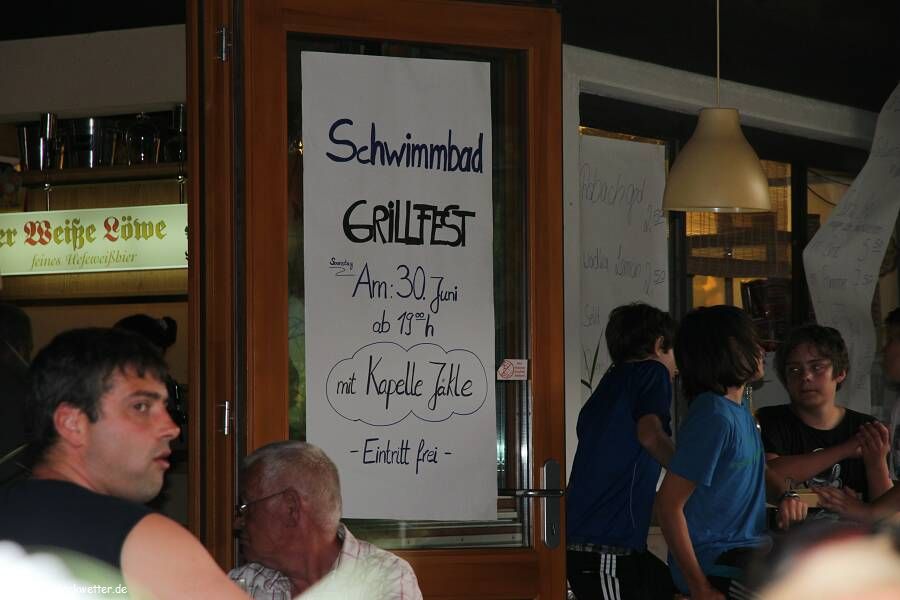 er Weiße Löwe
feines Hefeweißbier
Schwimmbad
GRILLFEST
Samstag
Am: 30. Juni
ab 19⁰⁰h
mit Kapelle Jäkle
- Eintritt frei -
2,50
wetter.de